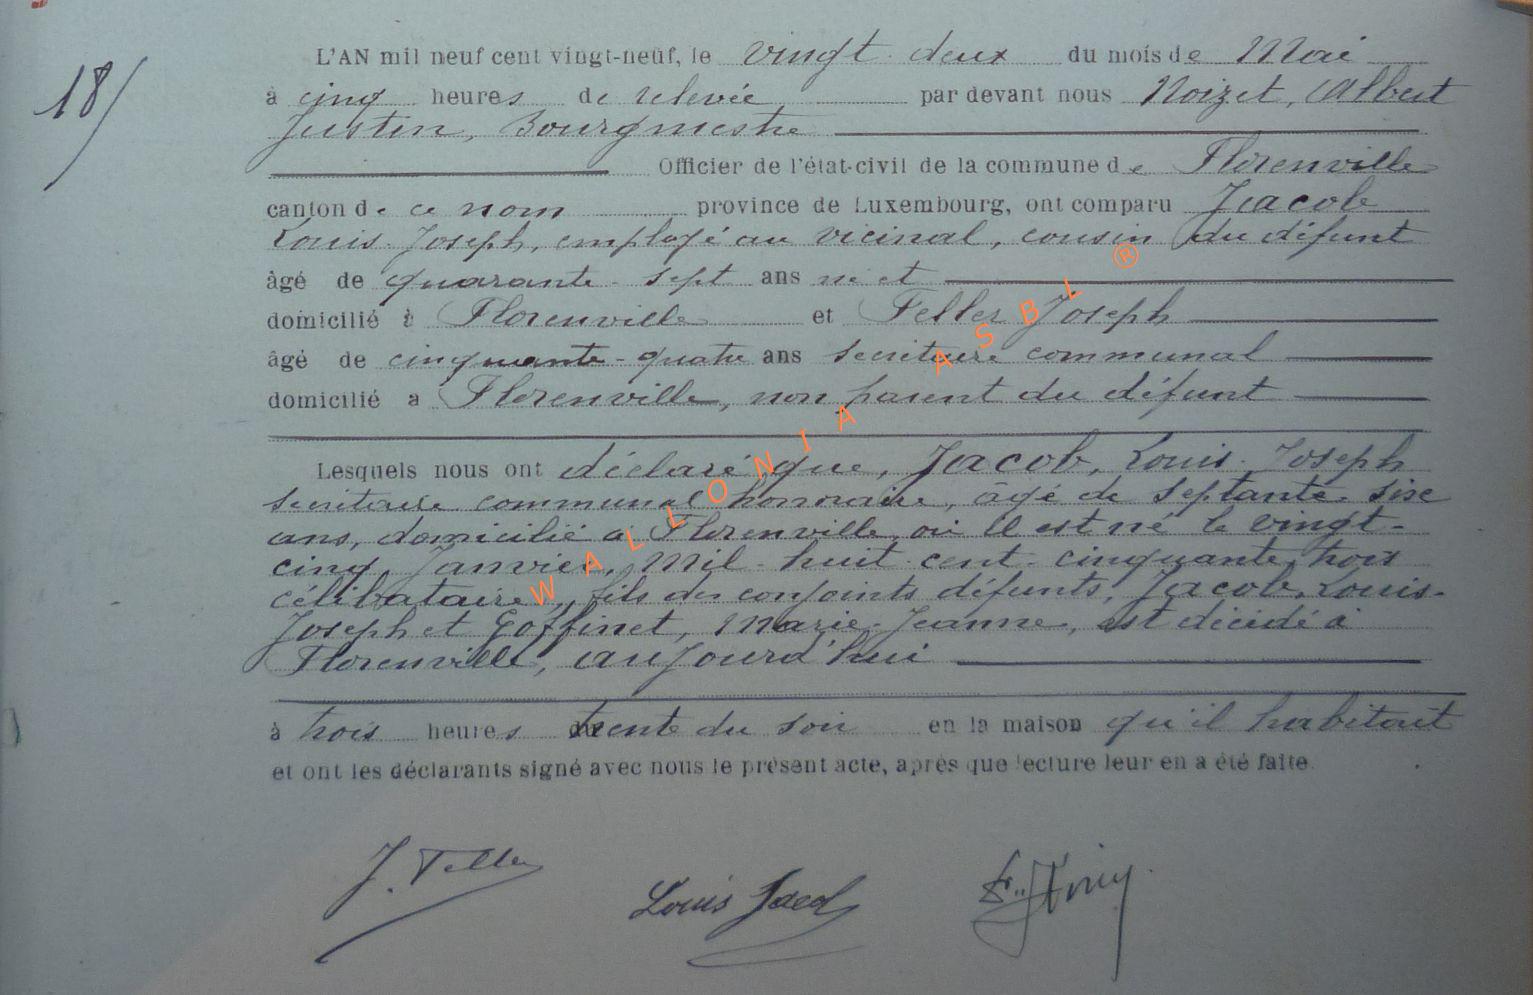 18/
L'AN mil neuf cent vingt-neuf, le vingt-deux du mois de Mai
à cinq heures de relevée par devant nous Noizet, Albert
Justin, Bourgmestre
Officier de l'état-civil de la commune de Florenville
canton de ce nom province de Luxembourg, ont comparu Jacob
Louis-Joseph, employé au vicinal, cousin du défunt
âgé de quarante-sept ans né et
domicilié à Florenville et Feller Joseph
âgé de cinquante-quatre ans secrétaire communal
domicilié a Florenville, non parent du défunt
Lesquels nous ont déclaré que, Jacob, Louis-Joseph
secrétaire communal honoraire, âgé de septante-six
ans, domicilié à Florenville, où il est né le vingt-
cinq Janvier, mil-huit-cent-cinquante trois
célibataire, fils des conjoints défunts, Jacob, Louis-
Joseph et Goffinet, Marie-Jeanne, est décédé à
Florenville, aujourd'hui
à trois heures trente du soir en la maison qu'il habitait
et ont les déclarants signé avec nous le présent acte, après que lecture leur en a été faite.
J. Feller
Louis Jacob
WALLONIA ASBL ®